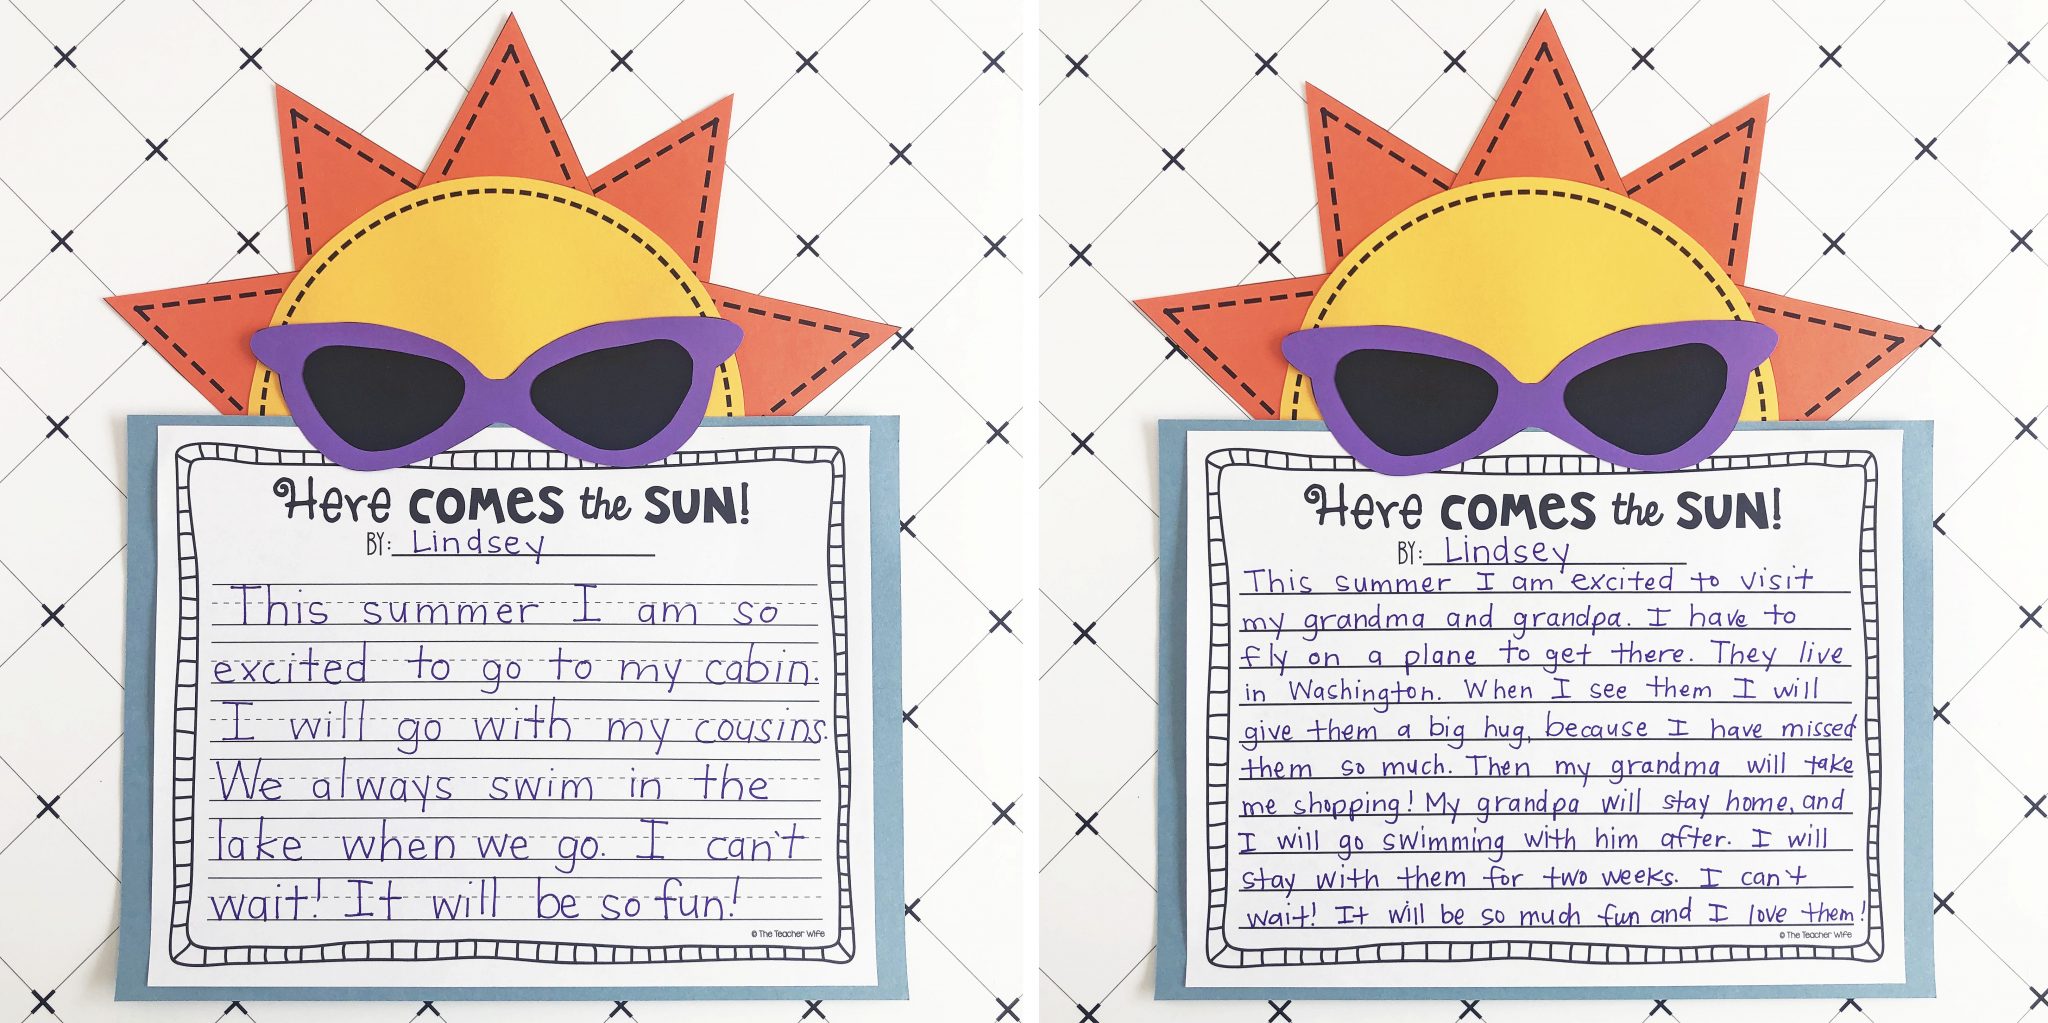 Here COMES the SUN!
BY: Lindsey
This summer I am so
excited to go to my cabin.
I will go with my cousins.
We always swim in the
lake when we go. I can't
wait! It will be so fun!
© The Teacher Wife
Here COMES the SUN!
BY: Lindsey
This summer I am excited to visit
my grandma and grandpa. I have to
fly on a plane to get there. They live
in Washington. When I see them I will
give them a big hug, because I have missed
them so much. Then my grandma will take
me shopping! My grandpa will stay home, and
I will go swimming with him after. I will
stay with them for two weeks. I can't
wait! It will be so much fun and I love them!
© The Teacher Wife